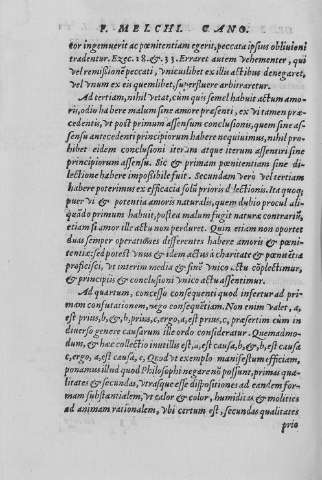 F. MELCHI. CANO.
tor ingemuerit ac pœnitentiam egerit, peccata ipsius obliuioni
tradentur. Ezec. 18. & 33. Erraret autem vehementer, qui
vel remißionē peccati, vnicuilibet ex illis actibus denegaret,
vel vnum ex eis quemlibet, superfluere arbitraretur.
Ad tertiam, nihil vetat, cùm quis semel habuit actum amo-
ris, odiū habere malum sine amore præsenti, ex vi tamen præ-
cedentis, vt post primum assensum conclusionis, quem sine as-
sensu antecedenti principiorum habere nequiuimus, nihil pro-
hibet eidem conclusioni iterum atque iterum assentiri sine
principiorum assensu. Sic & primam pœnitentiam sine di-
lectione habere impoßibile fuit. Secundam verò vel tertiam
habere poterimus ex efficacia solū prioris dilectionis. Ita quoq;
puer vi & potentia amoris naturalis, quem dubio procul ali-
quādo primum habuit, postea malum fugit naturæ contrariū,
etiam si amor ille actu non perduret. Quin etiam non oportet
duas semper operationes differentes habere amoris & pœni-
tentiæ: sed potest vnus & idem actus à charitate & pœniētia
proficisci, vt interim media & finē vnico actu cōplectimur,
& principiis & conclusioni vnico actu assentimur.
Ad quartum, concesso consequenti quod infertur ad pri-
mam confutationem, nego consequētiam. Non enim valet, a,
est prius, b, & b, prius, c, ergo, a, est prius, c, præsertim cùm in
diuerso genere causarum ille ordo consideratur. Quemadmo-
dum, & hæc collectio inutilis est, a, est causa, b, & b, est causa
c, ergo, a, est causa, c, Quod vt exemplo manifestum efficiam,
ponamus illud quod Philosophi negare nō possunt, primas qua-
litates & secundas, vtrasque esse dispositiones ad eandem for-
mam substantialem, vt calor & color, humiditas & mollities
ad animam rationalem, vbi certum est, secundas qualitates
prio